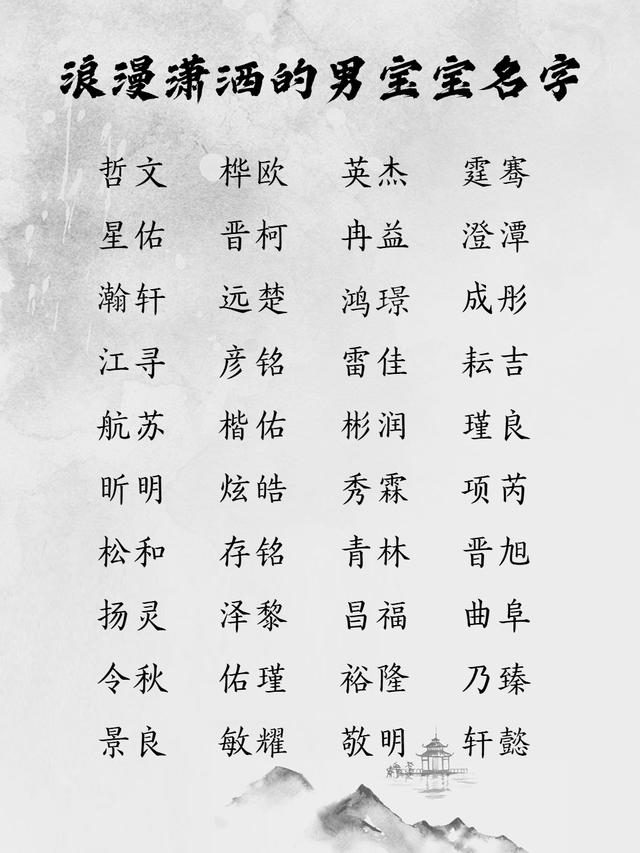 浪漫潇洒的男宝宝名字
哲文 桦欧 英杰 霆骞
星佑 晋柯 冉益 澄潭
瀚轩 远楚 鸿璟 成彤
江寻 彦铭 雷佳 耘吉
航苏 楷佑 彬润 瑾良
昕明 炫皓 秀霖 项芮
松和 存铭 青林 晋旭
扬灵 泽黎 昌福 曲阜
令秋 佑瑾 裕隆 乃臻
景良 敏耀 敬明 轩懿